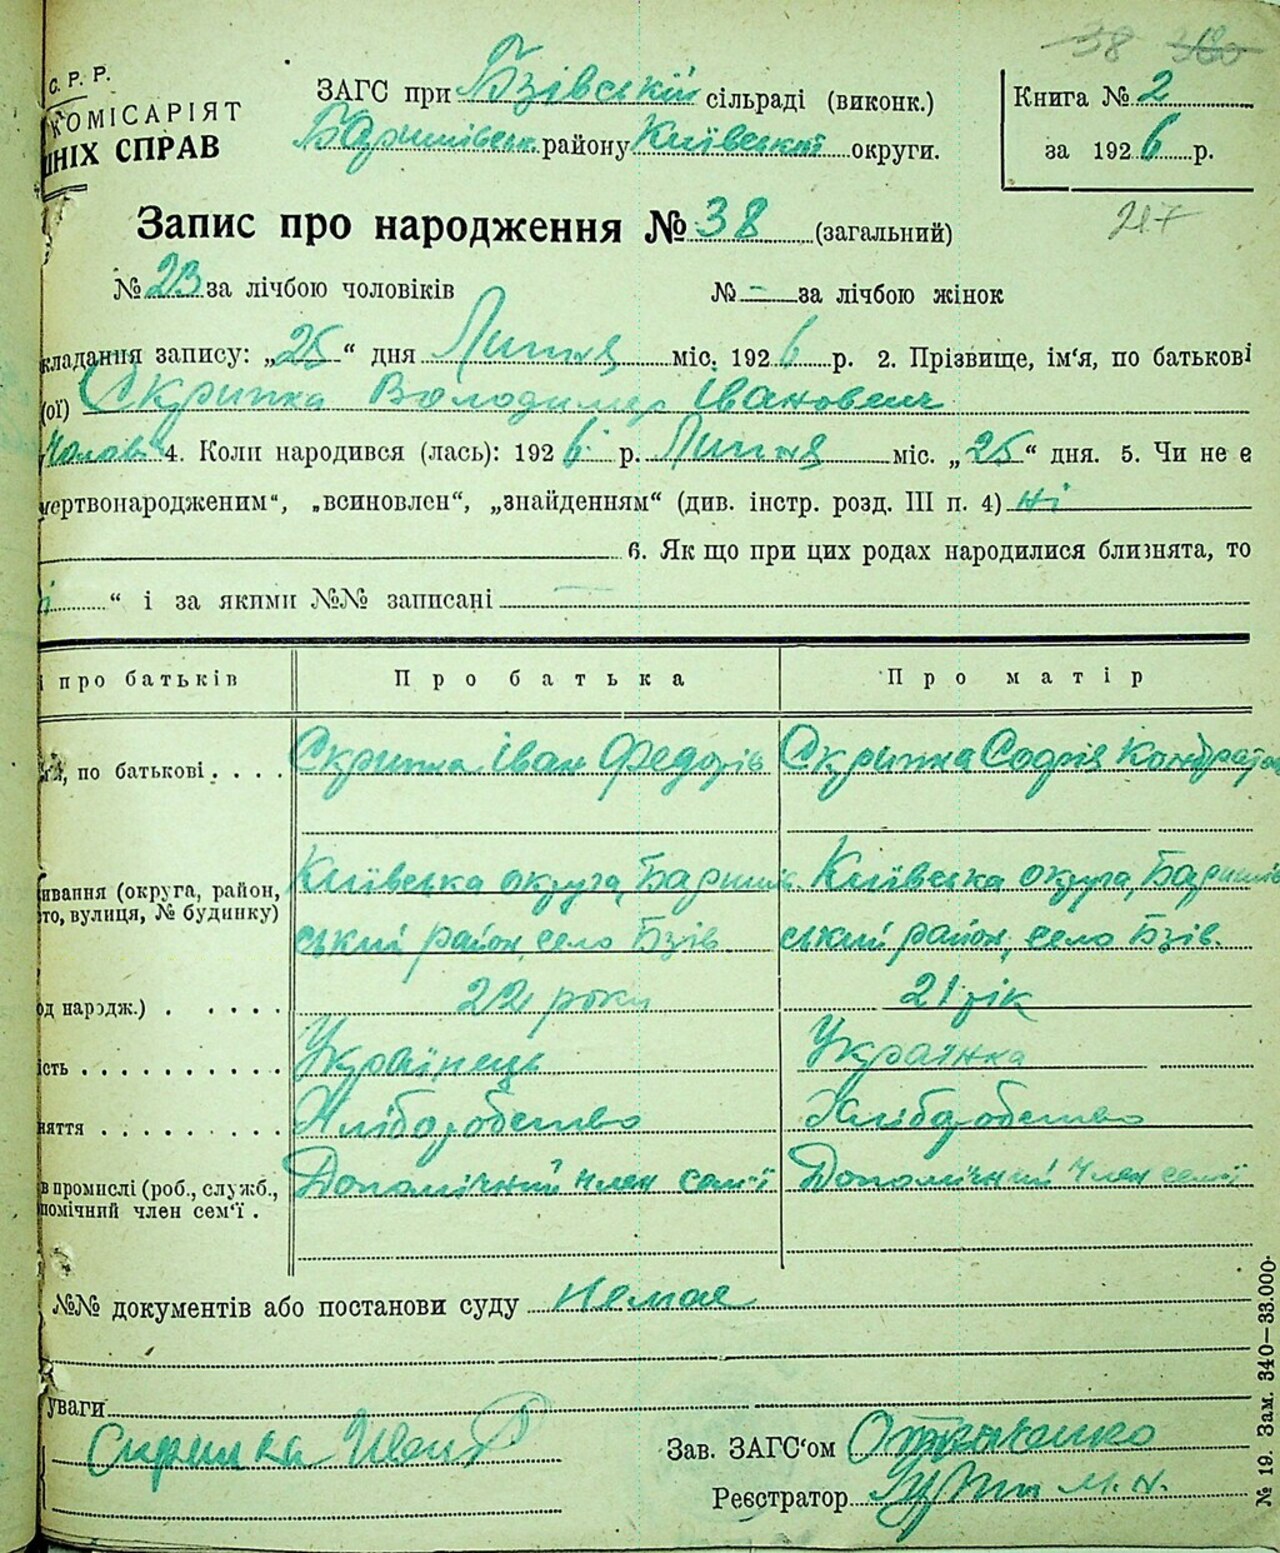 38 360
С. Р. Р.
КОМІСАРІЯТ
ШНІХ СПРАВ
ЗАГС при Бзівській сільраді (виконк.)
Баришівськ. району Київської округи.
Книга № 2
за 1926 р.
Запис про народження № 38 (загальний)
217
№ 23 за лічбою чоловіків № — за лічбою жінок
кладання запису: „25“ дня Липня міс. 1926 р. 2. Прізвище, ім‘я, по батькові
(ої) Скрипка Володимер Івановеич
Чолов. 4. Коли народився (лась): 1926 р. Липня міс. „25“ дня. 5. Чи не є
мертвонародженим“, „всиновлен“, „знайденням“ (див. інстр. розд. III п. 4) ні
6. Як що при цих родах народилися близнята, то
і “ і за якими №№ записані —
і про батьків Про батька Про матір
м‘я, по батькові . . . . Скрипка Іван Федорів Скрипка Софія Кондратов
ивання (округа, район, Київська округа, Баришів- Київська округа, Баришів
то, вулиця, № будинку) ський район, село Бзів. ський район, село Бзів.
од народж.) . . . . . 22 роки 21 рік
ість . . . . . . . . . . Українець Українка
няття . . . . . . . . . Хліборобство Хліборобство
в промислі (роб., служб., Допомічний член сем‘ї Допомічний член сем‘ї
помічний член сем‘ї .
№№ документів або постанови суду немає
уваги
Скрипка Иван
Зав. ЗАГС‘ом
Реєстратор М. Н.
№ 19. Зам. 340—33.000.